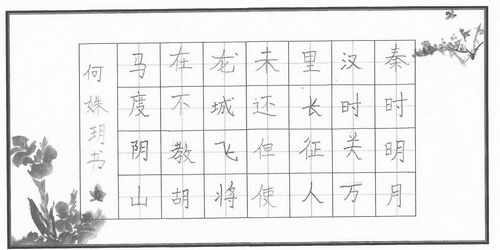 秦时明月
汉时关万
里长征人
未还但使
龙城飞将
在不教胡
马度阴山
何姝玥书